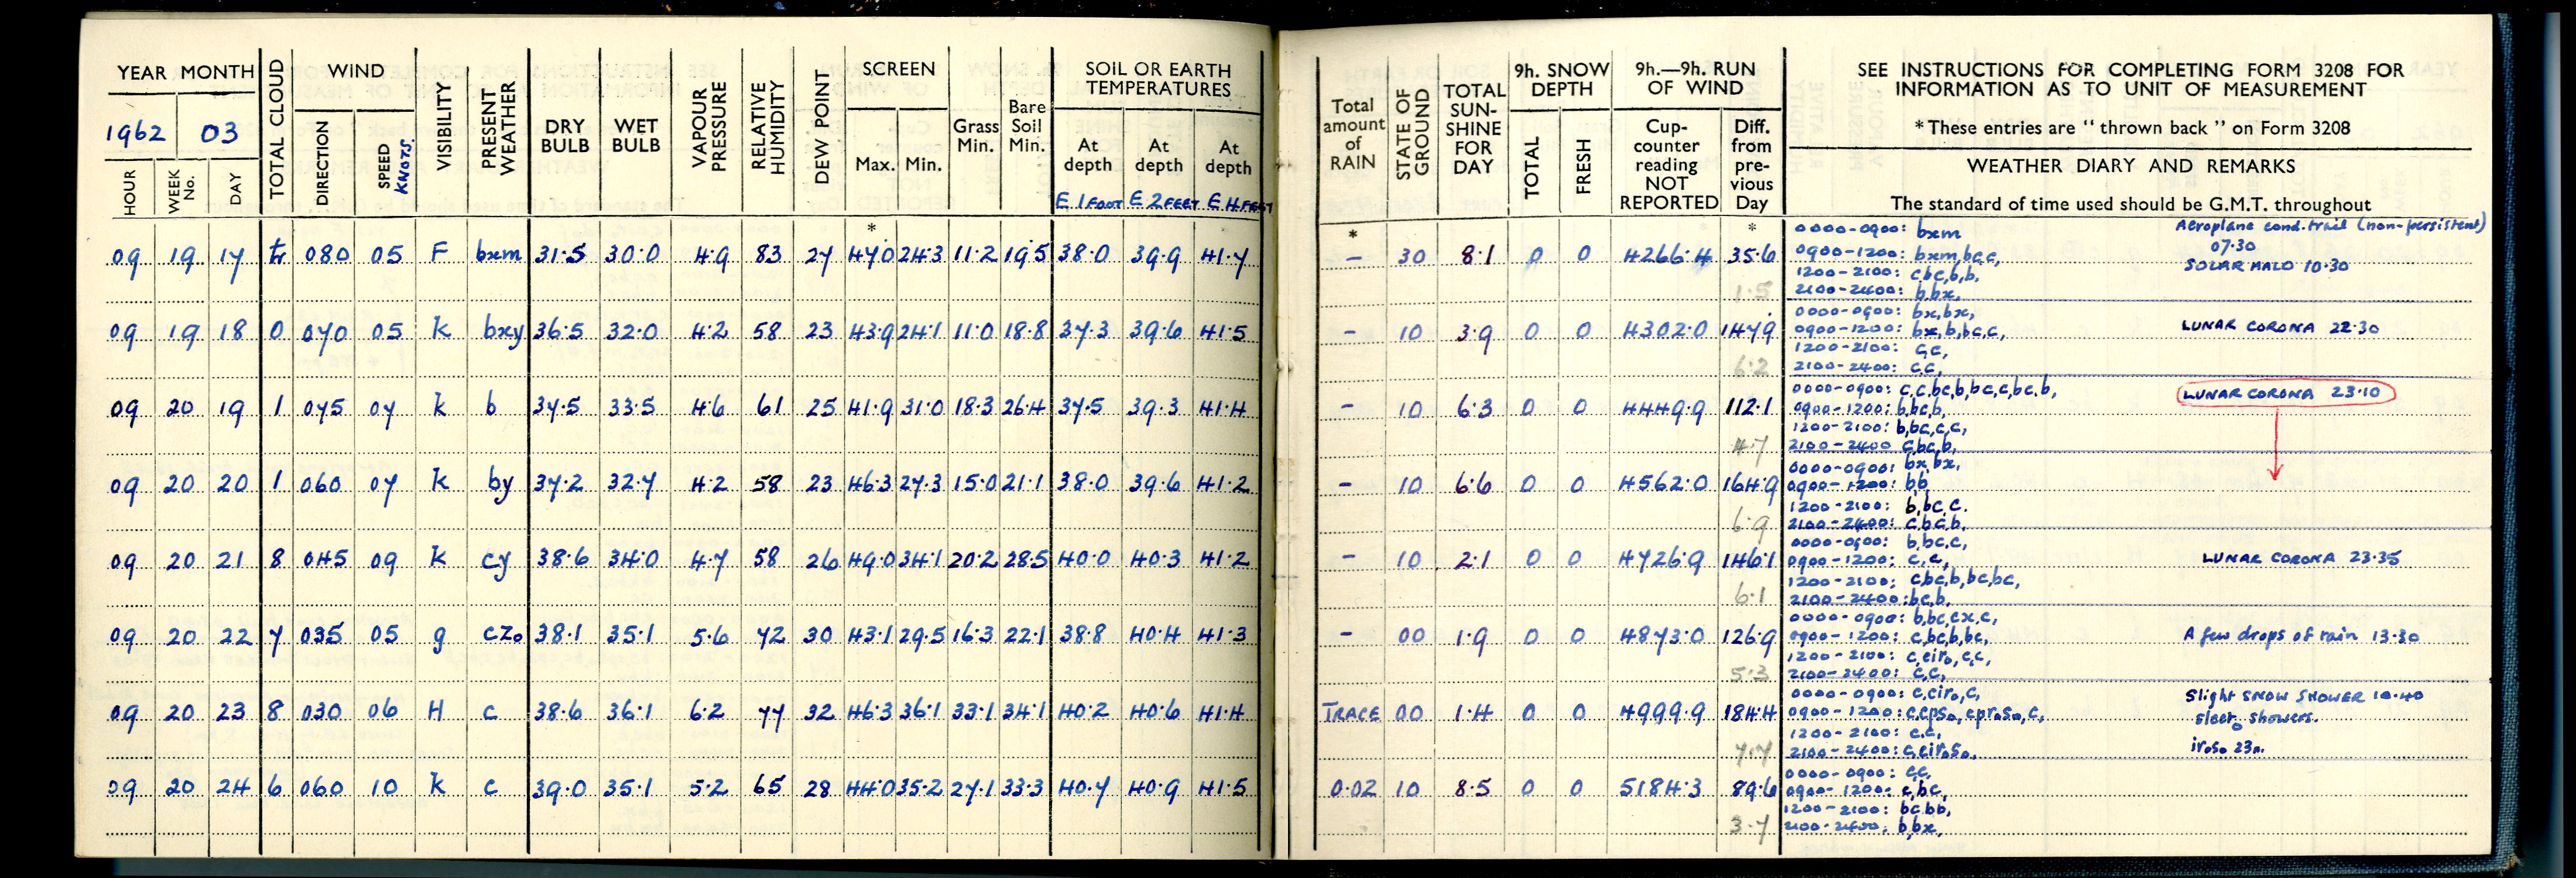 YEAR MONTH
1962 03
HOUR WEEK No. DAY TOTAL CLOUD WIND DIRECTION SPEED KNOTS. VISIBILITY PRESENT WEATHER DRY BULB WET BULB VAPOUR PRESSURE RELATIVE HUMIDITY DEW POINT SCREEN Max. Min. Grass Min. Bare Soil Min. SOIL OR EARTH TEMPERATURES At depth E 1 FOOT At depth E 2 FEET At depth E 4 FEET
Total amount of RAIN STATE OF GROUND TOTAL SUN-SHINE FOR DAY 9h. SNOW DEPTH TOTAL FRESH 9h.—9h. RUN OF WIND Cup-counter reading NOT REPORTED Diff. from pre-vious Day
SEE INSTRUCTIONS FOR COMPLETING FORM 3208 FOR
INFORMATION AS TO UNIT OF MEASUREMENT
* These entries are “ thrown back ” on Form 3208
WEATHER DIARY AND REMARKS
The standard of time used should be G.M.T. throughout
* * *
09 19 17 tr 080 05 F bxm 31·5 30·0 4·9 83 27 47·0 24·3 11·2 19·5 38·0 39·9 41·7 – 30 8·1 0 0 4266·4 35·6
1·5
0000-0900: bxm
0900-1200: bxm,bc,c,
1200-2100: c,bc,b,b,
2100-2400: b,bx,
Aeroplane cond.trail (non-persistent)
07.30
SOLAR HALO 10·30
09 19 18 0 070 05 k bxy 36·5 32·0 4·2 58 23 43·9 24·1 11·0 18·8 37·3 39·6 41·5 – 10 3·9 0 0 4302·0 147·9
6·2
0000-0900: bx,bx,
0900-1200: bx,b,bc,c,
1200-2100: c,c,
2100-2400: c,c,
LUNAR CORONA 22·30
09 20 19 1 075 07 k b 37·5 33·5 4·6 61 25 41·9 31·0 18·3 26·4 37·5 39·3 41·4 – 10 6·3 0 0 4449·9 112·1
4·7
0000-0900: c,c,bc,b,bc,c,bc,b,
0900-1200: b,bc,b,
1200-2100: b,bc,c,c,
2100-2400 c,bc,b,
LUNAR CORONA 23·10
09 20 20 1 060 07 k by 37·2 32·7 4·2 58 23 46·3 27·3 15·0 21·1 38·0 39·6 41·2 – 10 6·6 0 0 4562·0 164·9
6·9
0000-0900: bx,bx,
0900-1200: b,b
1200-2100: b,bc,c.
2100-2400: c,bc,b,
09 20 21 8 045 09 k cy 38·6 34·0 4·7 58 26 49·0 34·1 20·2 28·5 40·0 40·3 41·2 – 10 2·1 0 0 4726·9 146·1
6·1
0000-0900: b,bc,c,
0900-1200: c,c,
1200-2100: c,bc,b,bc,bc,
2100-2400: bc,b,
LUNAR CORONA 23·35
09 20 22 7 035 05 g cz₀ 38·1 35·1 5·6 72 30 43·1 29·5 16·3 22·1 38·8 40·4 41·3 – 00 1·9 0 0 4873·0 126·9
5·3
0000-0900: b,bc,cx,c,
0900-1200: c,bc,b,bc,
1200-2100: c,cir₀,c,c,
2100-2400: c,c,
A few drops of rain 13·30
09 20 23 8 030 06 H c 38·6 36·1 6·2 77 32 46·3 36·1 33·1 34·1 40·2 40·6 41·4 TRACE 00 1·4 0 0 4999·9 184·4
7·7
0000-0900: c,cir₀,c,
0900-1200: c,cps₀, cpr₀s₀,c,
1200-2100: c,c,
2100-2400: c,cir₀s₀,
Slight SNOW SHOWER 10·40
sleet₀ showers.
ir₀s₀ 23h.
09 20 24 6 060 10 k c 39·0 35·1 5·2 65 28 44·0 35·2 27·1 33·3 40·7 40·9 41·5 0·02 10 8·5 0 0 5184·3 89·6
3·7
0000-0900: c,c,
0900-1200: c,bc,
1200-2100: bc,bb,
2100-2400: b,bx,